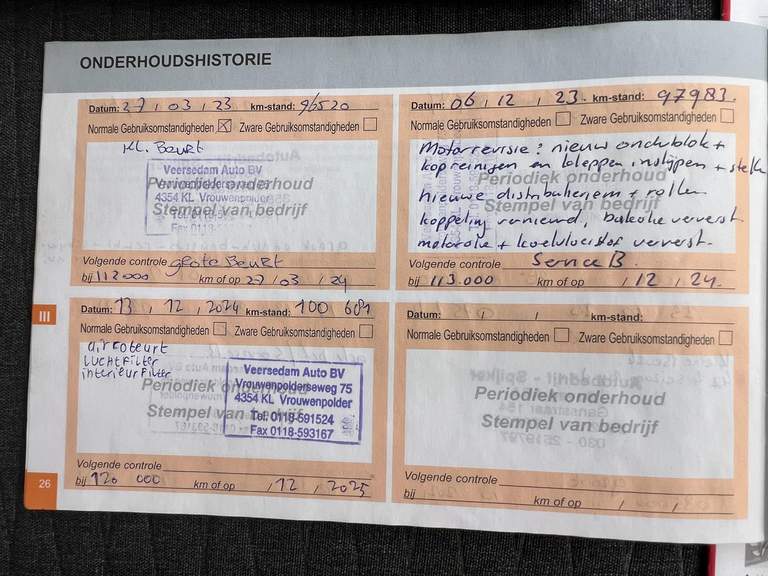 ONDERHOUDSHISTORIE
Datum: 27 / 03 / 23 km-stand: 96520
Normale Gebruiksomstandigheden ☒ Zware Gebruiksomstandigheden ☐
KL. Beurt
Veersedam Auto BV
4354 KL Vrouwenpolder
Periodiek onderhoud
Stempel van bedrijf
Volgende controle grote Beurt
bij 112000 km of op 27 / 03 / 24
Datum: 06 / 12 / 23. km-stand: 97983.
Normale Gebruiksomstandigheden ☐ Zware Gebruiksomstandigheden ☐
Motorrevisie: nieuw onderblok +
kop reinigen en kleppen inslijpen + stellen
Periodiek onderhoud
nieuwe distributieriem + rollen
Stempel van bedrijf
koppeling vernieuwd, bakolie ververst
motorolie + koelvloeistof ververst.
Volgende controle Service B.
bij 113.000 km of op / 12 / 24.
III
Datum: 13 / 12 / 2024 km-stand: 100 604
Normale Gebruiksomstandigheden ☐ Zware Gebruiksomstandigheden ☐
airco beurt
luchtfilter
interieur filter
Veersedam Auto BV
Vrouwenpolderseweg 75
4354 KL Vrouwenpolder
Tel. 0118-591524
Fax 0118-593167
Periodiek onderhoud
Stempel van bedrijf
Volgende controle
bij 120 000 km of op / 12 / 2025
Datum: / / km-stand:
Normale Gebruiksomstandigheden ☐ Zware Gebruiksomstandigheden ☐
Periodiek onderhoud
Stempel van bedrijf
Volgende controle
bij km of op / /
26